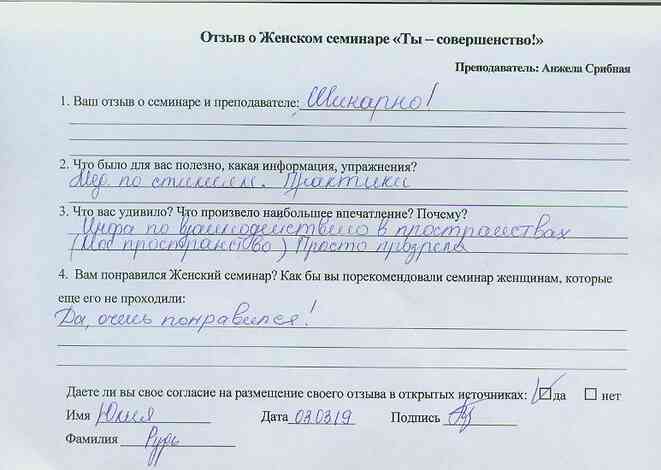 Отзыв о Женском семинаре «Ты – совершенство!»
Преподаватель: Анжела Срибная
1. Ваш отзыв о семинаре и преподавателе: Шикарно!
2. Что было для вас полезно, какая информация, упражнения?
Мед. по стихиям. Практики
3. Что вас удивило? Что произвело наибольшее впечатление? Почему?
Инфа по взаимодействию в пространствах
(Моё пространство) Просто прозрела
4. Вам понравился Женский семинар? Как бы вы порекомендовали семинар женщинам, которые
еще его не проходили:
Да, очень понравился!
Даете ли вы свое согласие на размещение своего отзыва в открытых источниках: да нет
Имя Юлия Дата 03.03.19 Подпись
Фамилия Рудь